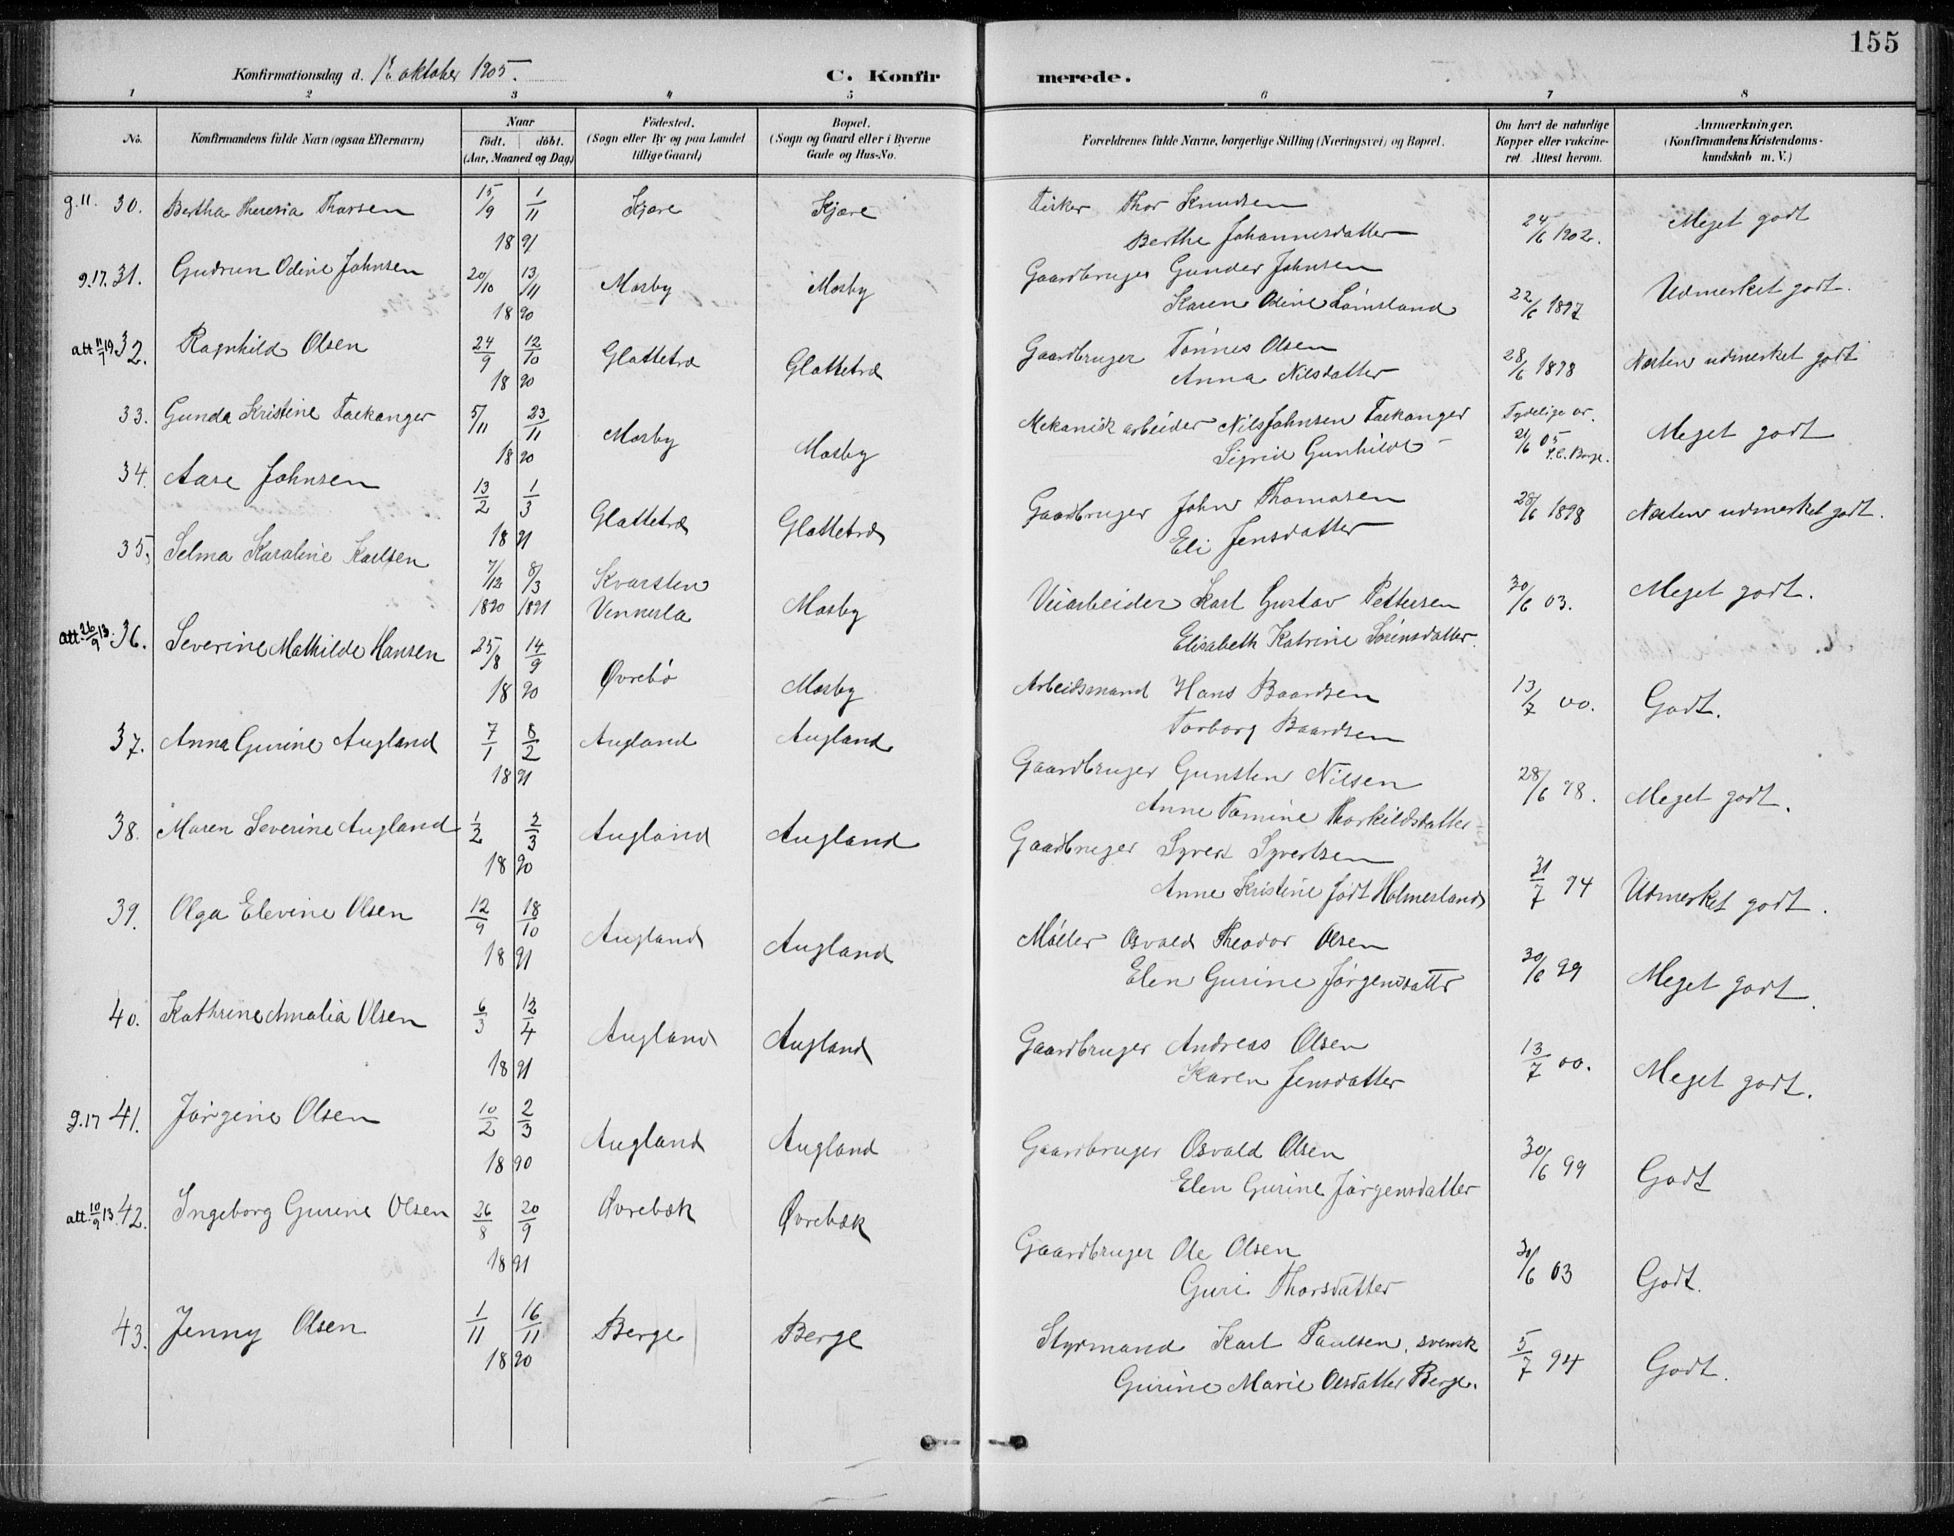 155
Konfirmationsdag d. 1ste oktober 1905.
C. Konfirmerede.
1 2 3 4 5 6 7 8
No. | Konfirmandens fulde Navn (ogsaa Efternavn) | Naar født. døbt. (Aar, Maaned og Dag) | Fødested. (Sogn eller By og paa Landet tillige Gaard) | Bopæl. (Sogn og Gaard eller i Byerne Gade og Hus-No. | Forældrenes fulde Navne, borgerlige Stilling (Næringsvei) og Bopæl. | Om havt de naturlige Kopper eller vakcineret. Attest herom. | Anmærkninger. (Konfirmandens Kristendomskundskab m. V.)
g. 11. 30. Bertha Theresia Thorsen 15/9 1/11 1891 Kjære Kjære Fisker Thor Knudsen 24/6 1902. Meget godt
Berthe Johannesdatter
g. 17. 31. Gudrun Odine Johnsen 20/10 13/11 1890 Mosby Mosby Gaardbruger Gunder Johnsen 22/6 1897 Udmerket godt.
Karen Odine Lømsland
att 11/7 19 32. Ragnhild Olsen 24/9 12/10 1890 Glattetræ Glattetræ Gaardbruger Tønnes Olsen 28/6 1898 Næsten udmerket godt
Anna Nilsdatter
33. Gunda Kristine Faekanger 5/11 23/11 1890 Mosby Mosby Mekanisk arbeider Nils Johnsen Faekanger Tydelige ar. 21/6 05 Meget godt
Sigrid Gunhilde
34. Aase Johnsen 13/2 1/3 1891 Glattetræ Glattetræ Gaardbruger John Thomasen 28/6 1898 Næsten udmerket godt.
Eli Jensdatter
35. Selma Karoline Karlsen 7/12 1890 8/3 1891 Kvarsten Vennesla Mosby Veiarbeider Karl Gustav Pettersen 30/6 03. Meget godt.
Elisabeth Katrine Sørensdatter.
att. 26/9 13. 36. Severine Mathilde Hansen 25/8 14/9 1890 Øvrebø Mosby Arbeidsmand Hans Baardsen 13/7 00. Godt.
Torborg Baardsen
37. Anna Gurine Augland 7/1 8/2 1891 Augland Augland Gaardbruger Gunsten Nilsen 28/6 98. Meget godt.
Anne Tomine Thorkildsdatter
38. Maren Severine Augland 1/2 2/3 1890 Augland Augland Gaardbruger Syvert Syvertsen 31/7 94 Udmerket godt.
Anne Kristine født Holmesland
39. Olga Elevine Olsen 12/9 18/10 1891 Augland Augland Møller Osvald Theodor Olsen 30/6 99 Meget godt.
Elen Gurine Jørgensdattr
40. Kathrine Amalia Olsen 6/3 12/4 1891 Augland Augland Gaardbruger Andreas Olsen 13/7 00. Meget godt.
Karen Jensdatter
g. 17 41. Jørgine Olsen 10/2 2/3 1890 Augland Augland Gaardbruger Osvald Olsen 30/6 99 Godt
Elen Gurine Jørgensdatter
att. 10/9 13. 42. Ingeborg Gurine Olsen 26/8 20/9 1891 Øvrebæk Øvrebæk Gaardbruger Ole Olsen 30/6 03 Godt.
Guri Thorsdatter
43. Jenny Olsen 1/11 16/11 1890 Berge Berge Styrmand Karl Paulsen, svensk 5/7 94 Godt.
Gurine Marie Olsdatter Berge.